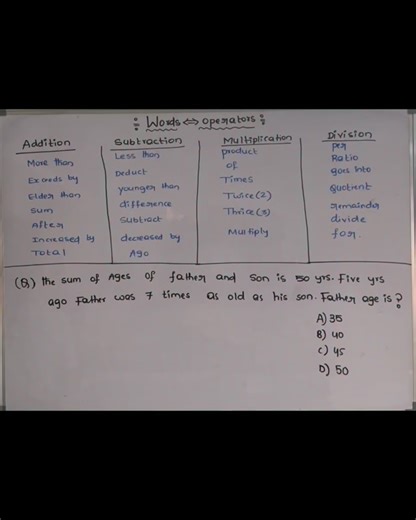 ÷ Words ⇔ operators ÷
Addition
More than
Exceeds by
Elder than
Sum
After
Increased by
Total
Subtraction
Less than
Deduct
younger than
difference
Subtract
decreased by
Ago
Multiplication
product
of
Times
Twice (2)
Thrice (3)
Multiply
Division
per
Ratio
goes into
Quotient
remainder
divide
for.
(Q) The sum of Ages of father and Son is 50 yrs. Five yrs
ago Father was 7 times as old as his son. Father age is?
A) 35
B) 40
C) 45
D) 50